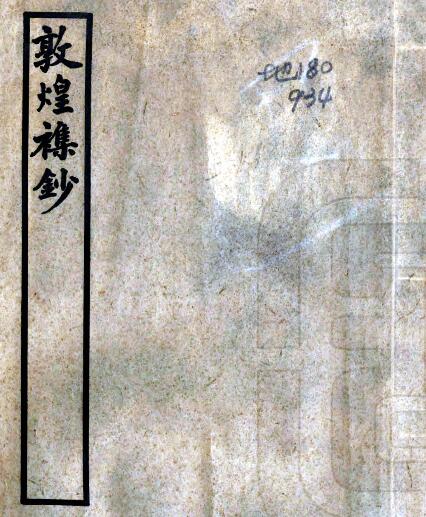 敦煌襍鈔
地180
934